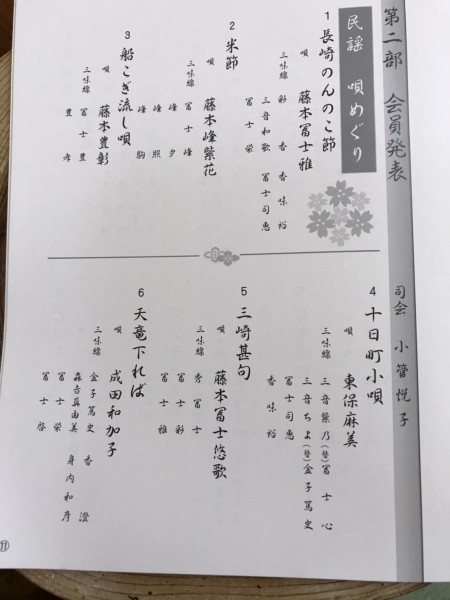 第二部 会員発表
司会 小管悦子
民謡 唄めぐり
1 長崎のんのこ節
唄 藤本冨士雅
三味線 彩香 香味裕
三音和歌 冨士司恵
冨士栄
2 米節
唄 藤本峰紫花
三味線 冨士峰
峰夕
峰照
峰駒
3 船こぎ流し唄
唄 藤本豊彰
三味線 冨士豊
豊孝
4 十日町小唄
唄 東保麻美
三味線 三音紫乃(替)冨士心
三音ちよ(替)金子篤史
冨士司恵
香味裕
5 三崎甚句
唄 藤本冨士悠歌
三味線 秀冨士
冨士彩
冨士雅
6 天竜下れば
唄 成田和加子
三味線 金子篤史 香澄
森吉真由美 身内和彦
冨士栄
冨士啓
⑪